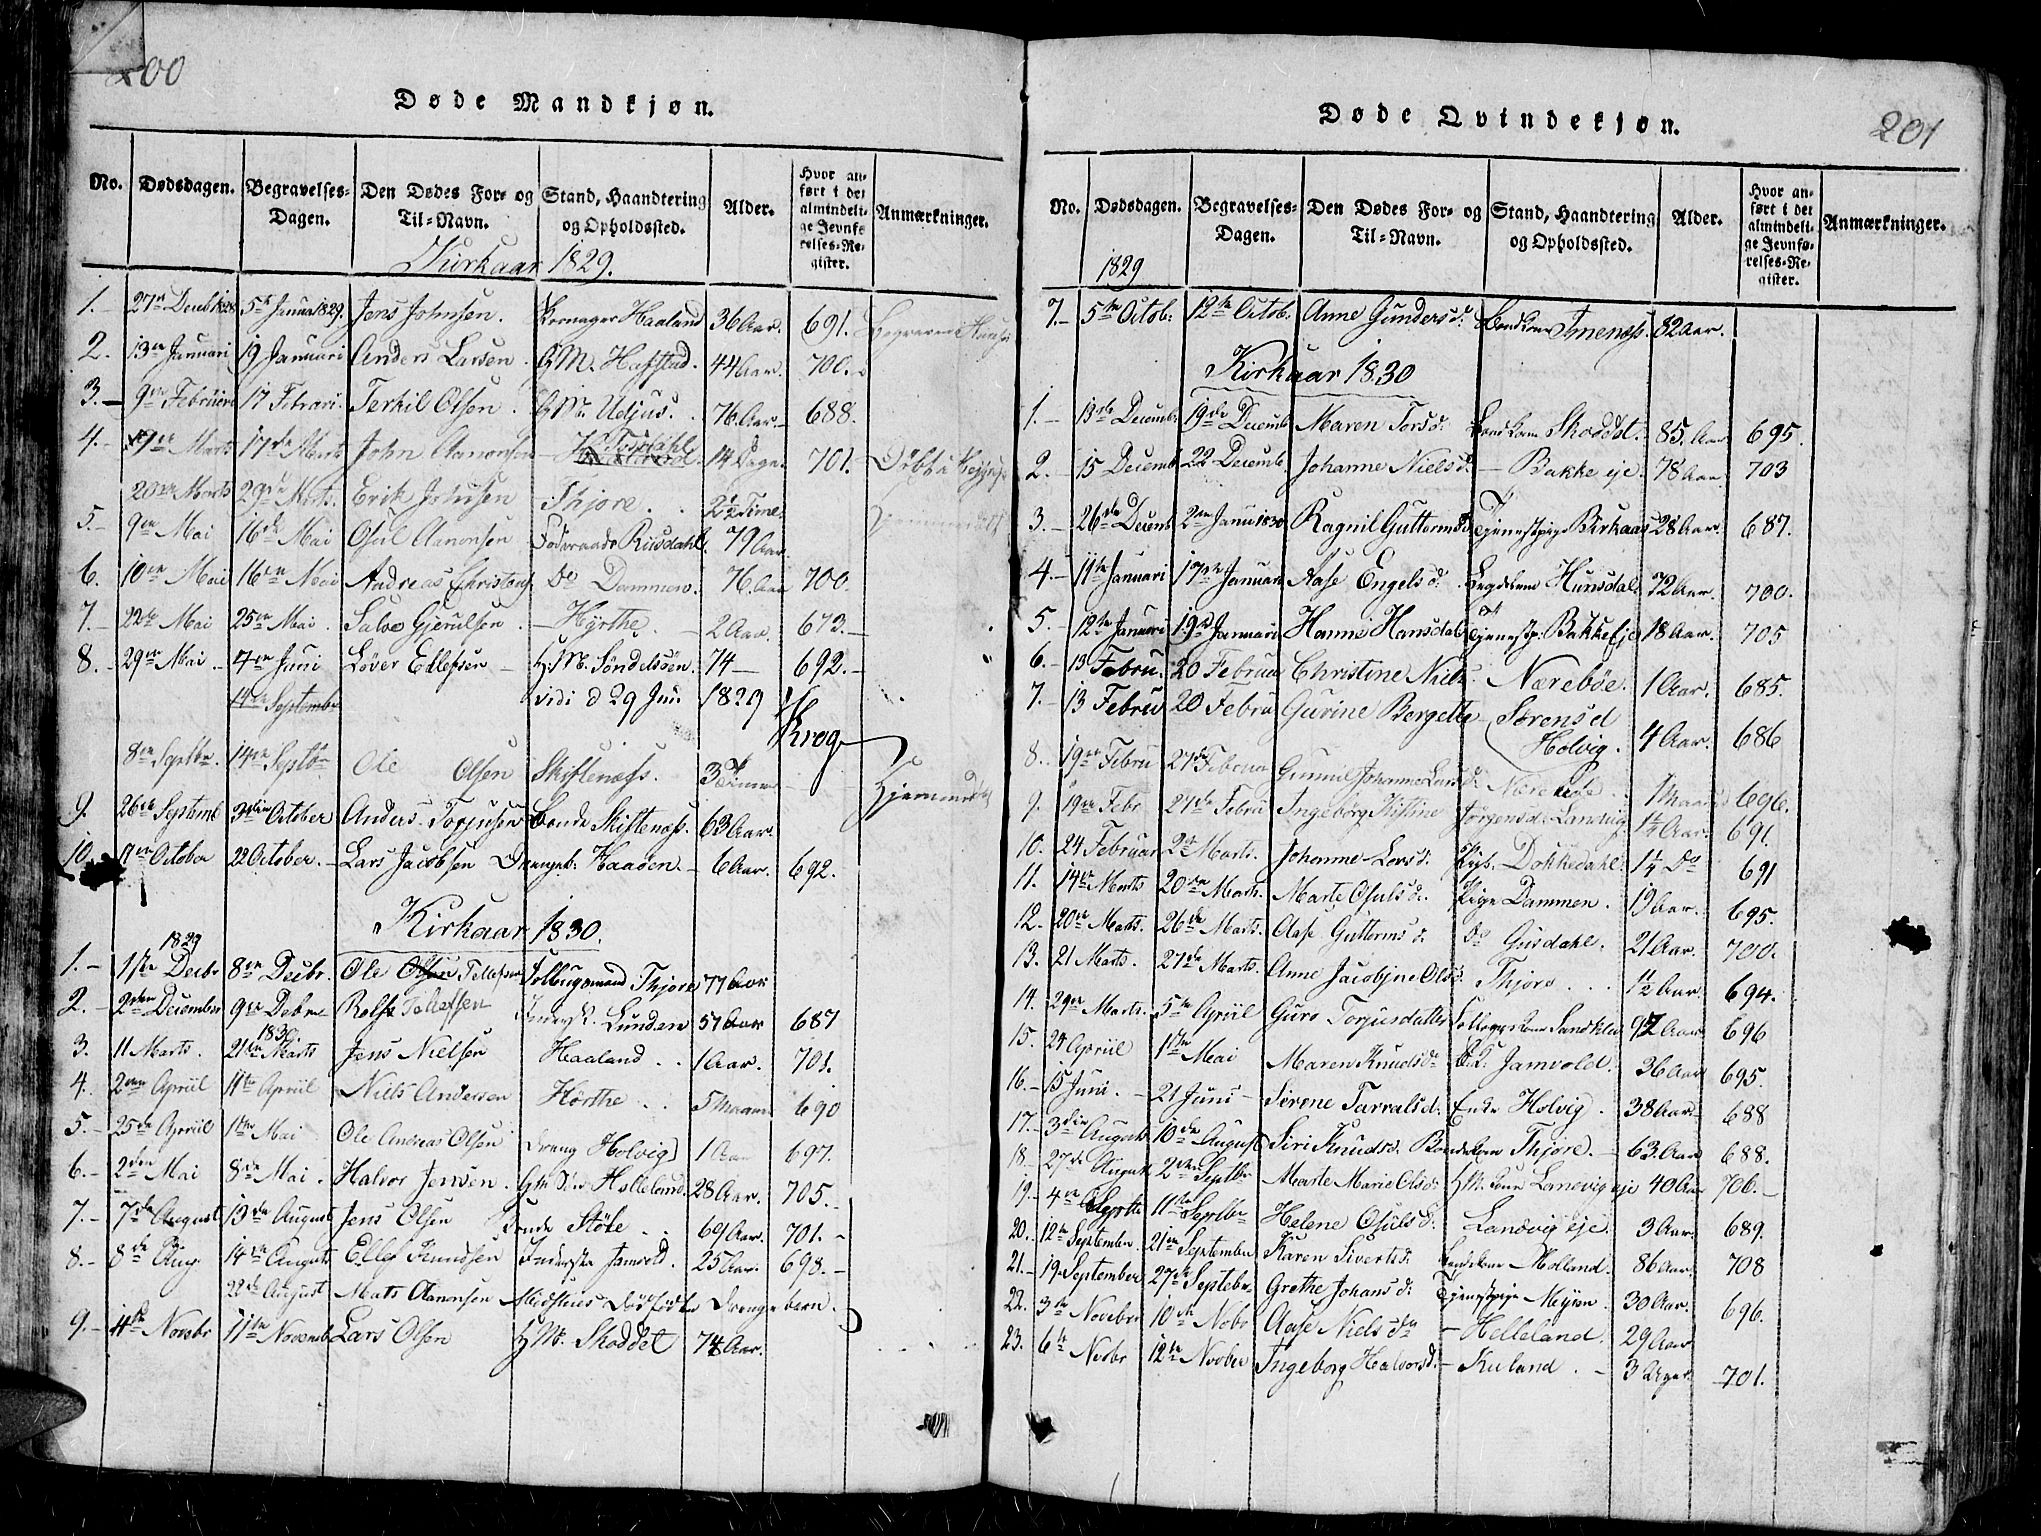 200
Døde Mandkjøn.
No. Dødsdagen. Begravelses-Dagen. Den Dødes For- og Til-Navn. Stand, Haandtering og Opholdssted. Alder. Hvor anført i det almindelige Jevnførelses-Register. Anmærkninger.
Kirkaar 1829.
1. 27de Decb 1828 5te Janua 1829. Jens Johnsen. Haaland 36 Aar. 691.
2. 13de Januari 19 Januari Anders Larsen. G.M. Hafstad. 44 Aar. 700.
3. 9de Februari 17 Februari. Terkil Olsen. G.M. Udjus. 76 Aar. 688.
4. Marts 17de Marts John Aanonsen Torsdahl 14 Dage 701.
20de Marts 29de Marts. Erik Johnsen Thjore. 2½ Time
5. 9de Mai 16de Mai Osul Aanonsen Føderaads Riisdahl. 79 Aar.
6. 10de Mai 16de Mai Andreas Christens Do Dommen. 76 Aar 700.
7. 22de Mai 25de Mai. Salve Gjerulsen. Hyrthe. 2 Aar. 673.
8. 29de Mai 4de Juni Løver Ellefsen G.M. Søndelsøen 74 692.
14de September vidi d 29 Juni 1829 Krog
8de Septbr. 14de Septbr Ole Olsen Skiftenæss. 3 Timer Hjemmedøbt
9. 26de Septemb 3die October Anders Torjusen Bonde Skiftenæss. 63 Aar.
10. October 22 October. Lars Jacobsen Drengeb: Haaøen. 6 Aar. 692.
Kirkaar 1830.
1829
1. 1ste Decbr 8de Decbr. Ole Olsen Tellefsen Thjore 77 Aar
2. 2den December 9de Debr Rolf Tellefsen Lunden 57 Aar 687
1830
3. 11 Marts. 21de Marts Jens Nielsen Haaland 1 Aar. 701.
4. 2den Apriil 11te Apriil Niels Andersen Hørthe 5 Maan 690
5. 25de Apriil 1ste Mai Ole Andreas Olsen Dreng Holvig 1 Aar 697.
6. 2den Mai 8de Mai. Halvor Jensen. Gm Søn Holleland. 28 Aar. 705.
7. 7de August 13de August Jens Olsen Bonde Støle 69 Aar. 701.
8. 8de Aug 14de August Ellef Knudsen Inderste Jamvold. 25 Aar. 698.
22de August Mats Aanonsen dødfødte Drengebarn.
9. 4de Novbr 11te Novemb Lars Olsen G.M. Skoddet 74 Aar.
Døde Qvindekjøn. 201
No. Dødsdagen. Begravelses-Dagen. Den Dødes For- og Til-Navn. Stand, Haandtering og Opholdssted. Alder. Hvor anført i det almindelige Jevnførelses-Register. Anmærkninger.
1829
7. 5te Octob: 12te Octob: Anne Gundersd: Bondkone Imenæss. 82 Aar.
Kirkaar 1830
1. 13de Decemb: 19de Decemb Maren Torsd: Bondkone Skoddet. 85 Aar 695.
2. 15 Decemb 22 Decemb Johanne Nielsd: Bakke eje 78 Aar. 703
3. 26de Decemb 2den Janu 1830 Ragnil Guttormsd Tjenestpige Birkaas 28 Aar. 687.
4. 11te Januari 17de Januari Aase Engelsd: Hunsdal 72 Aar. 700.
5. 12te Januari 19de Januari Hanne Hansdat Tjenestp. Bakke Eje 18 Aar. 705
6. 13 Febru. 20 Februa Christine Niels Nærebøe. 1 Aar. 685.
7. 13 Febru 20 Febru Gurine Bergette Sørensd Holvig. 4 Aar. 686
8. 19de Febru 27de Februa Gunnil Johanne Larsd: Nærebøe 1 Maaned 696.
9. 19de Febr 27de Febru Ingeborg Kistine Jørgensd: Landvig 1¼ Aar. 691.
10. 24 Februar 2de Marts. Johanne Larsd: Dokkedahl. 1¼ Do 691
11. 14de Marts 20de Marts. Marte Osulsd: Pige Dammen. 19 Aar. 695.
12. 20de Marts. 26de Marts. Aase Guttormsd: Do Guisdahl. 21 Aar. 700.
13. 21 Marts. 27de Marts. Anne Jacobjne Olsd: Thjore 1½ Aar. 694.
14. 29de Marts. 5te Apriil Guro Torjusdatter 92 Aar 696
15. 24 Apriil 1ste Mai Maren Knudsd: Jamvold. 36 Aar 695.
16. 15 Juni. 21 Juni Sørene Tarralsd: Enke Holvig. 38 Aar 688
17. 3die August 10de August Siri Knudsd: Bondekone Thjore. 63 Aar 688.
18. 27de August 2den Septbr Marte Marie Olsd: G.M. Kone Lanevig eje 40 Aar 706.
19. 4de Septbr 11te Septbr Helene Osulsd: Landvig eje. 3 Aar. 689.
20. 12te September 21de September Karen Sivertsd: Bondekone Molland. 86 Aar. 708
21. 19 September 27de Septebr Grethe Johansd: Tjenestpige Mejren 30 Aar. 696.
22. 3de Novebr 10de Nobr Aase Nielsdr Helleland. 29 Aar
23. 6te Novbr 12te Novber Ingeborg Halvorsd: Kuland. 3 Uger. 701.